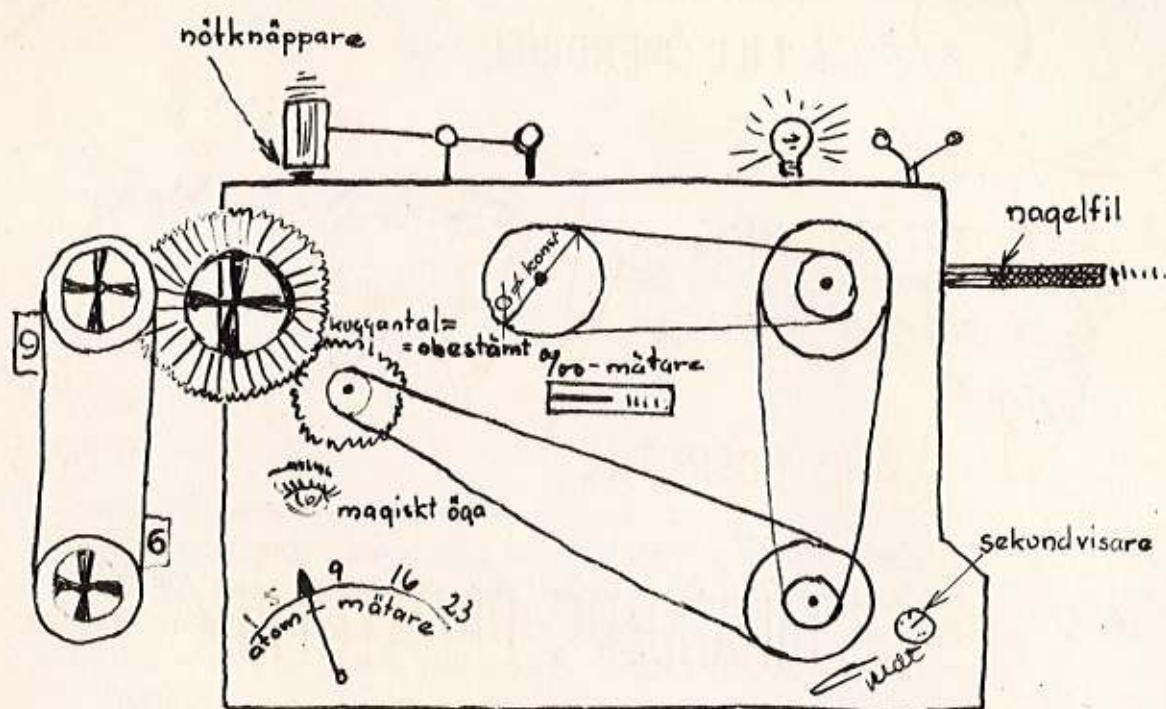 nötknäppare
nagelfil
≠ konst
kuggantal=
= obestämt
o/oo-mätare
9
6
magiskt öga
sekundvisare
1 5 9 16 23
atom - mätare